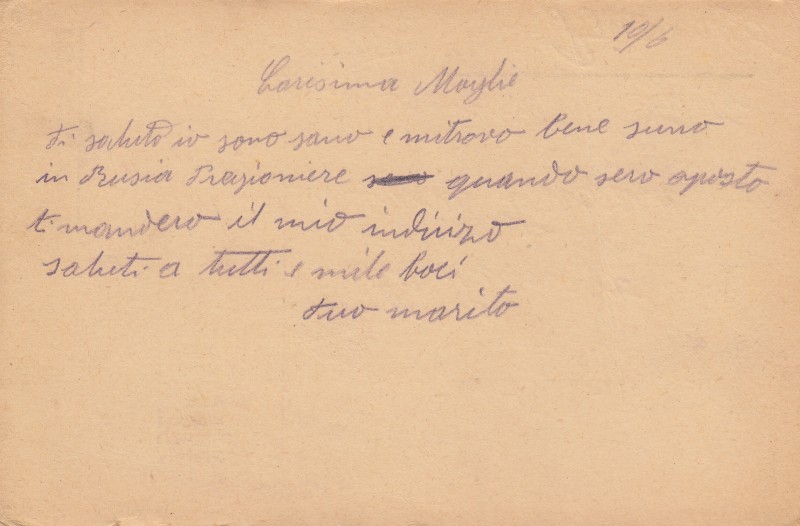 10/6
Carisima Moglie
Ti saluto io sono sano e mitrovo bene suno
in Rusia Pragioniere quando sero aposto
ti mandero il mio indirizo
saluti a tutti e mile baci
tuo marito